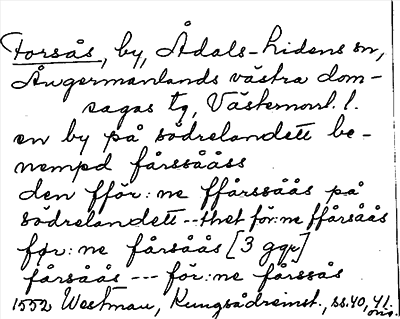 Forsås, by, Ådals-Lidens sn,
Ångermanlands västra dom-
sagas tg, Västernorrl. l.
en by på södrelandett be-
nempd fårssååss
den fför:ne ffårssåås på
södrelandett--thet för:ne ffårsåås
för:ne fårsåås [3 ggr]
fårsåås --- för:ne fårssås
1552 Westman, Kungsådreinst., ss. 40, 41.